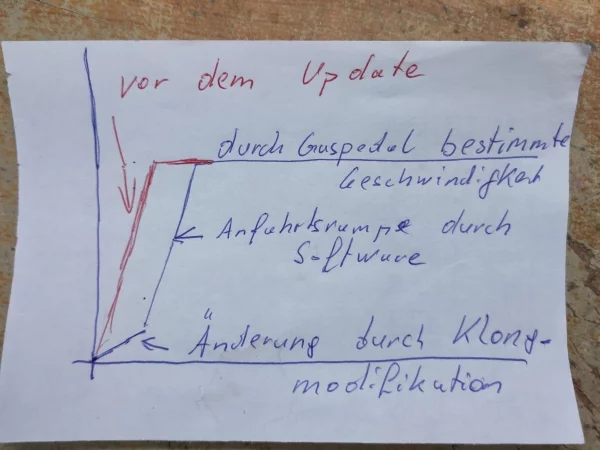 vor dem Update
durch Gaspedal bestimmte
Geschwindigkeit
Anfahrtsrampe durch
Software
Änderung durch Klong-
modifikation